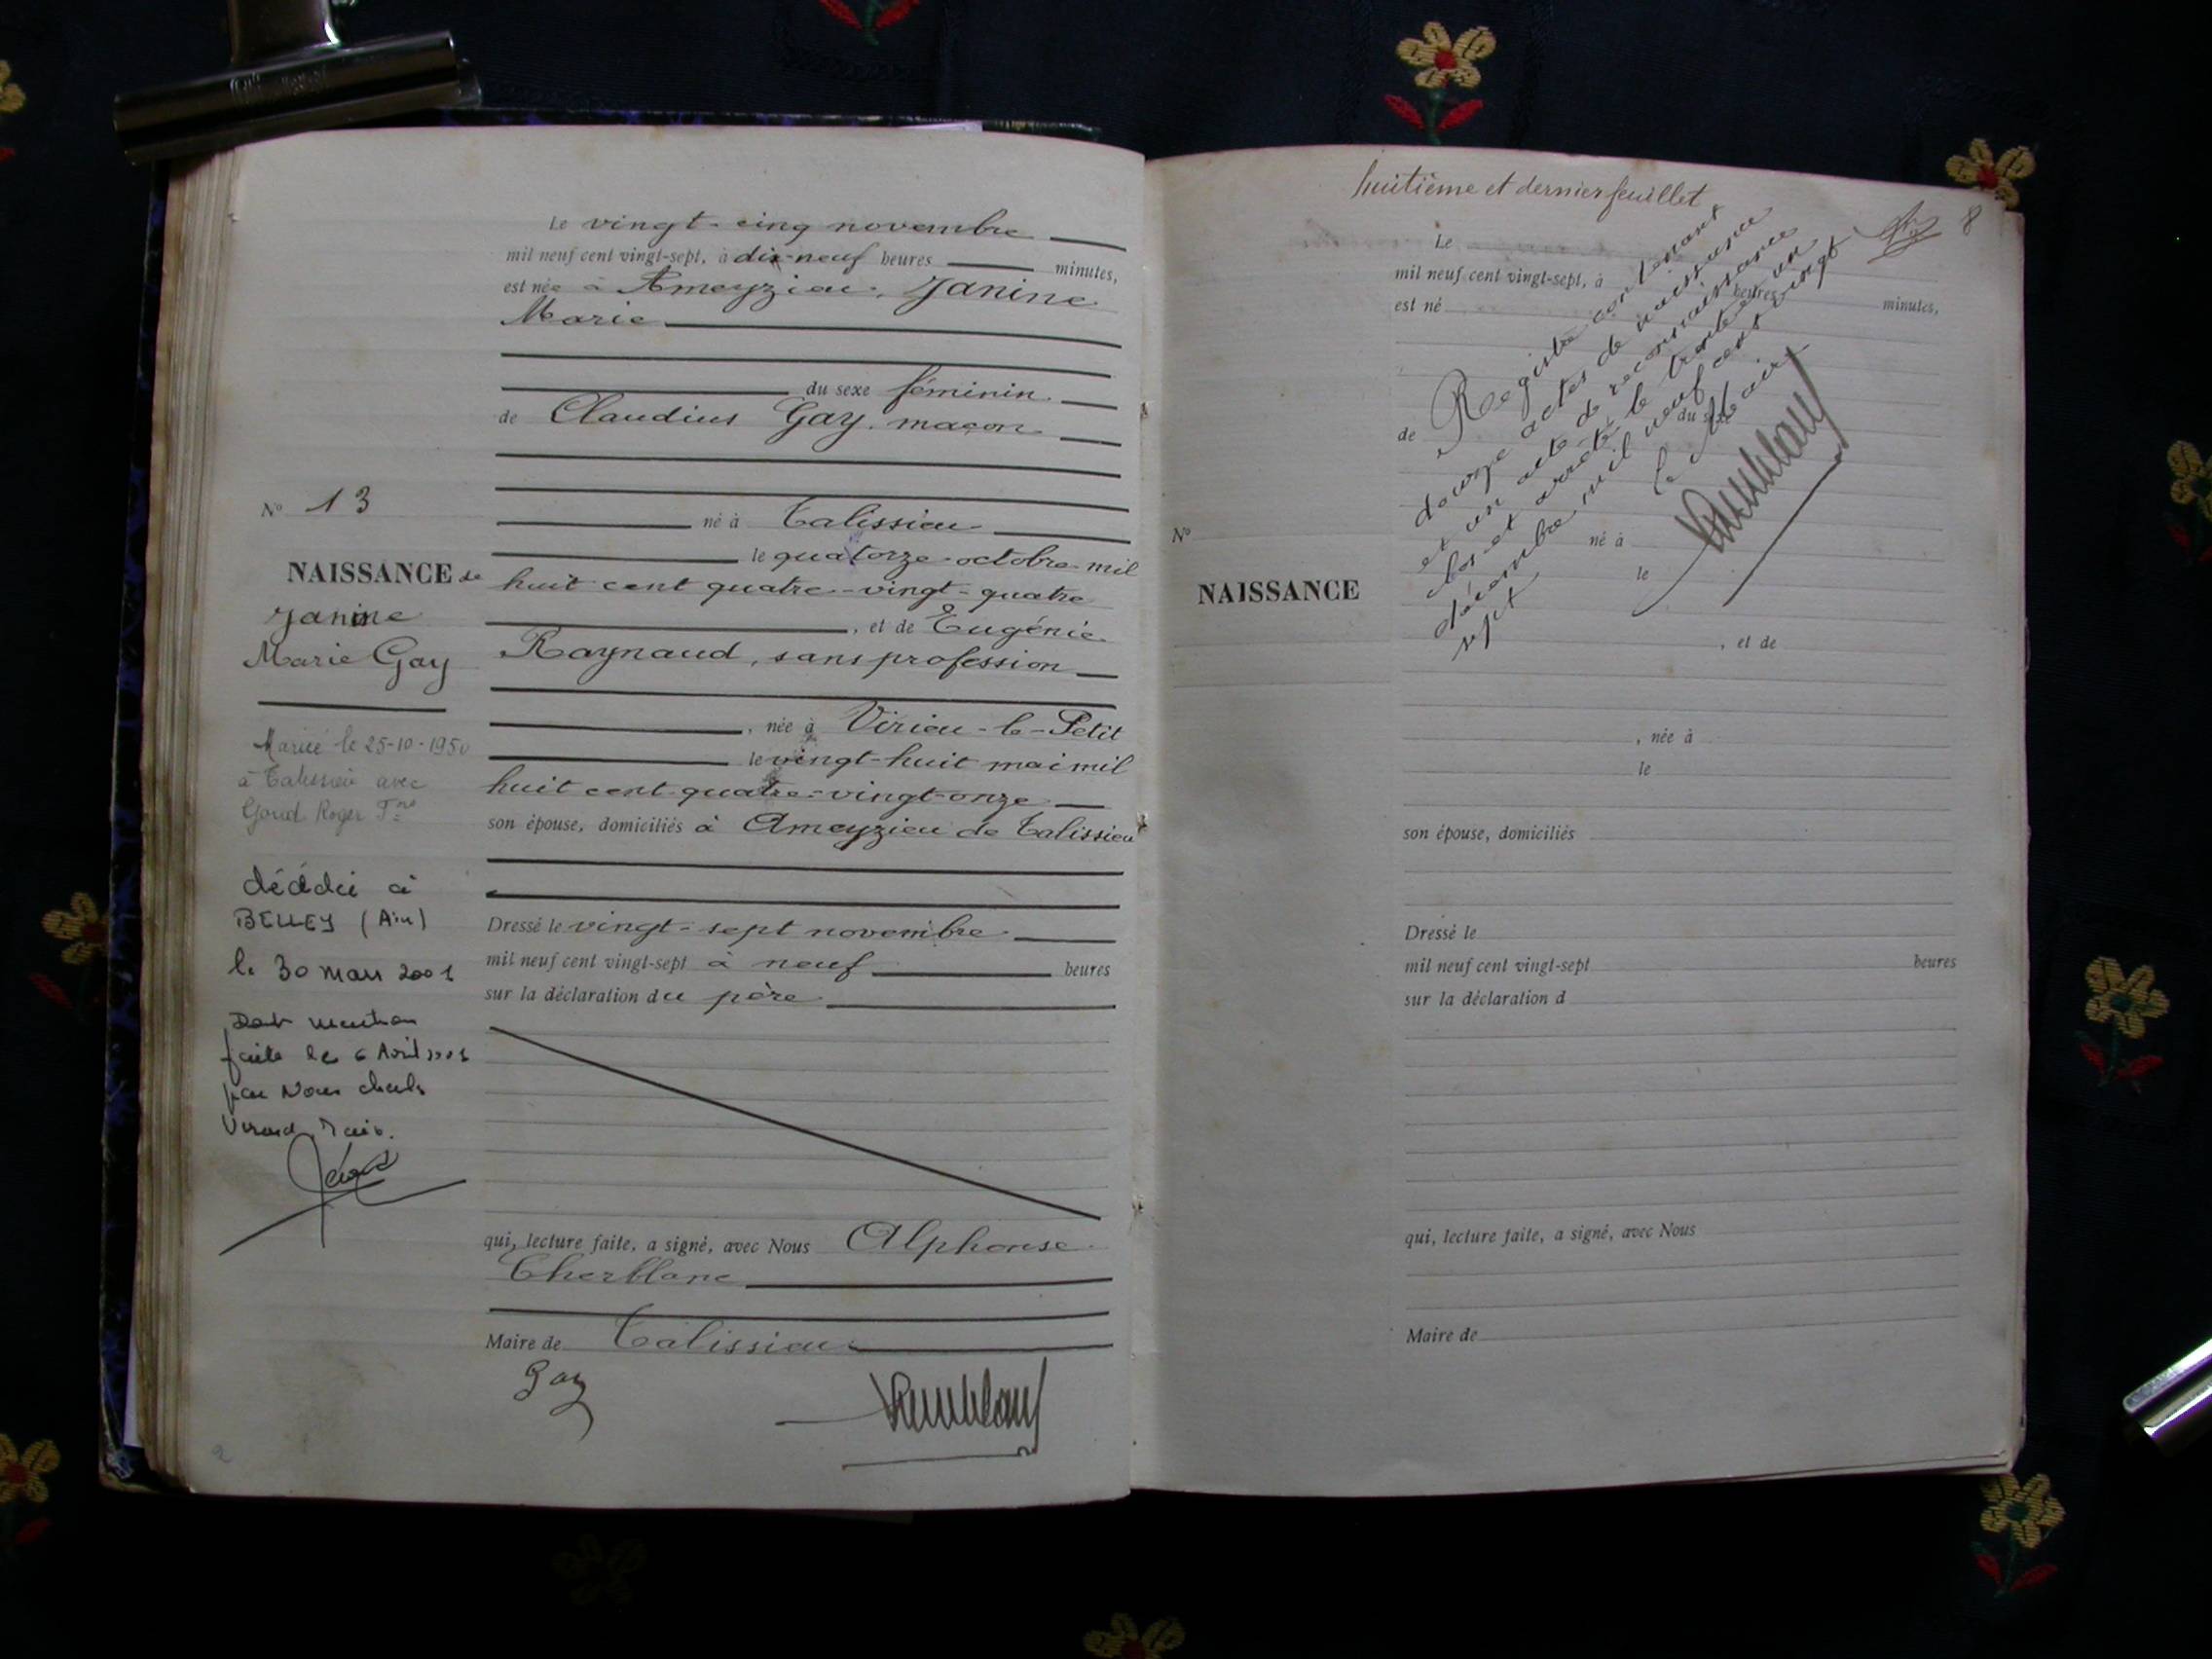 Le vingt-cinq novembre
mil neuf cent vingt-sept, à dix-neuf heures minutes,
est née à Ameyzieu, Janine
Marie
du sexe féminin
de Claudius Gay, maçon
né à Talissieu
le quatorze octobre mil
huit cent quatre-vingt-quatre
, et de Eugénie
Raynaud, sans profession
, née à Virieu-le-Petit
le vingt-huit mai mil
huit cent quatre-vingt-onze
son épouse, domiciliés à Ameyzieu de Talissieu
Dressé le vingt-sept novembre
mil neuf cent vingt-sept à neuf heures
sur la déclaration du père
qui, lecture faite, a signé, avec Nous Alphonse
Cherblanc
Maire de Talissieu
Gay
N° 13
NAISSANCE de
Janine
Marie Gay
Marié le 25-10-1950
à Talissieu avec
Goud Roger
dédédé à
BELLEY (Ain)
le 30 mars 2001
Dont mention
faite le 6 Avril 2001
par Nous
Maire.
huitième et dernier feuillet
8
Registre contenant
douze actes de naissance
et un acte de reconnaissance
clos et arrêté le trente et un
décembre mil neuf cent vingt
sept
le Maire
Le
mil neuf cent vingt-sept, à heures minutes,
est né
du sexe
de
N°
NAISSANCE
né à
le
, et de
, née à
le
son épouse, domiciliés
Dressé le
mil neuf cent vingt-sept heures
sur la déclaration d
qui, lecture faite, a signé, avec Nous
Maire de